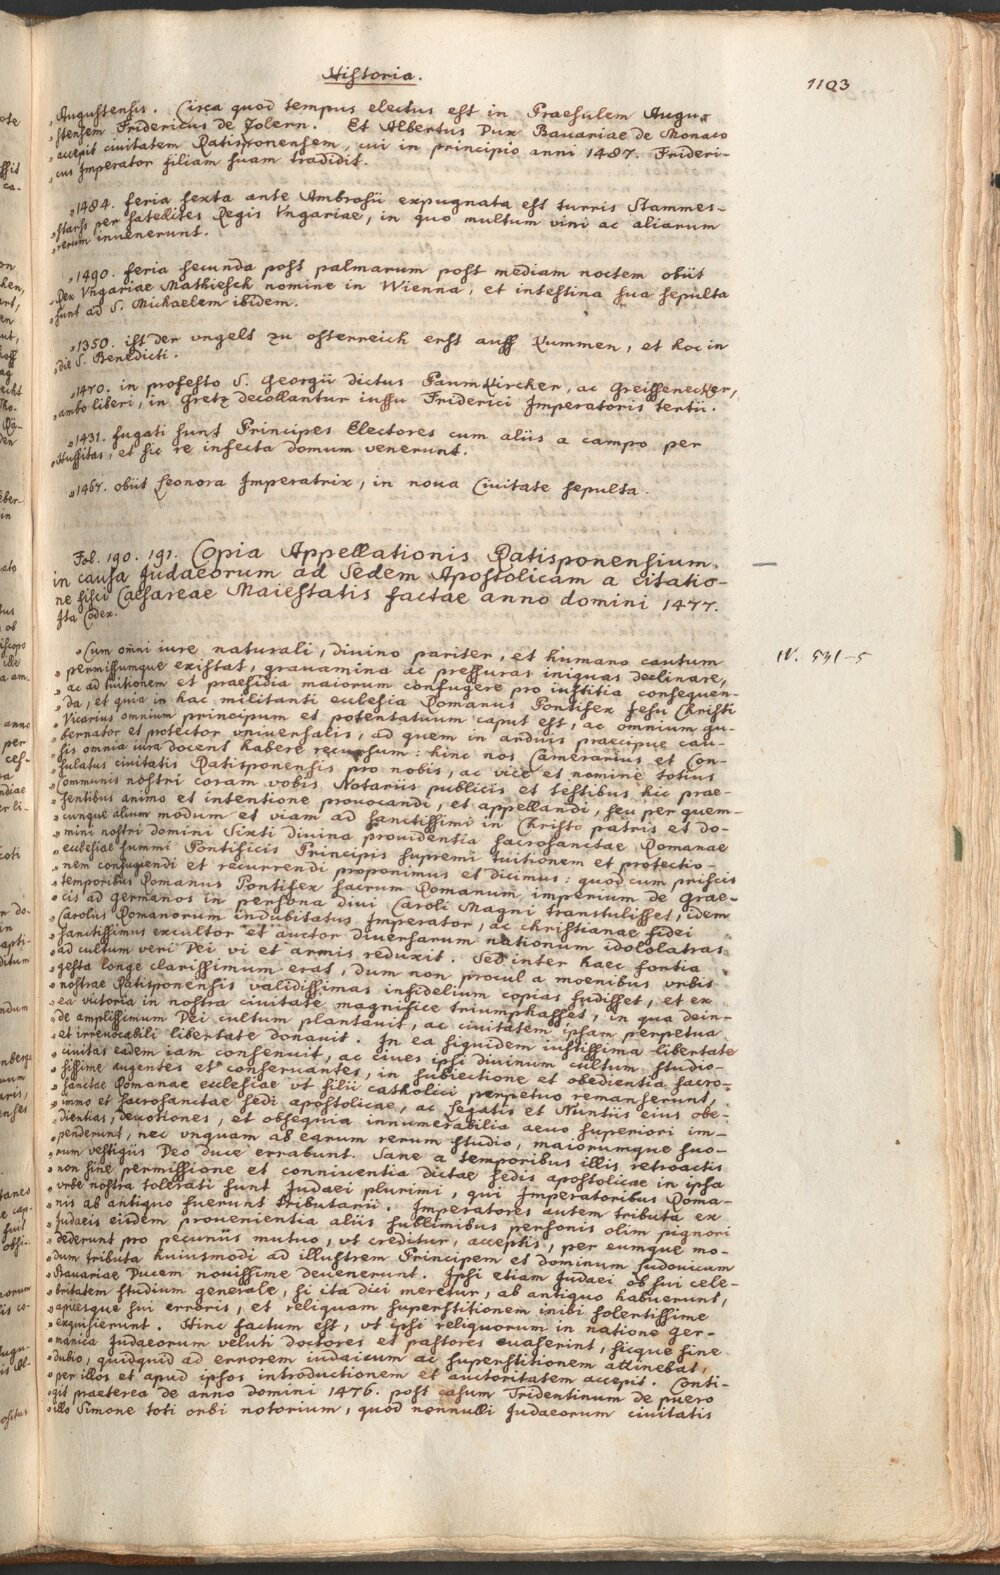 Historia.
1103
„Augustensis. Circa quod tempus electus est in Praesulem Augu-
„stensem Fridericus de Zolern. Et Albertus Dux Bauariae de Monaco
„accepit ciuitatem Ratisponensem, cui in principio anni 1487. Frideri-
„cus Imperator filiam suam tradidit.
„1484. feria sexta ante Ambrosii expugnata est turris Stammes-
„starss per satellites Regis Vngariae, in quo multum vini ac aliarum
„rerum inuenerunt.
„1490. feria secunda post palmarum post mediam noctem obiit
„Rex Vngariae Mathiesch nomine in Wienna, et intestina sua sepulta
„sunt ad S. Michaelem ibidem.
„1350. ist der vngelt zu osterreich erst auff Kummen, et hoc in
„die S. Benedicti.
„1470. in professto S. Georgii dictus PaumKircher, ac Greissenecker,
„ambo liberi, in Gretz decollantur iussu Friderici Imperatoris tertii.
„1431. fugati sunt Principes Electores cum aliis a campo per
„Hussitas, et sic re infecta domum venerunt.
„1467. obiit Leonora Imperatrix, in noua Ciuitate sepulta.
Fol. 190. 191. Copia Appellationis Ratisponensium
in causa Judaeorum ad Sedem Apostolicam a citatio-
ne fisci Caesareae Maiestatis factae anno domini 1477.
Ita Codex.
IV. 531-5
„Cum omni iure naturali, diuino pariter, et humano cautum
„permissumque existat, grauamina ac pressuras iniquas declinare,
„ac ad tuitionem et praesidia maiorum confugere pro iustitia consequen-
„da, et quia in hac militanti ecclesia Romanus Pontifex Jesu Christi
„Vicarius omnium principum et potentatuum caput est, ac omnium gu-
„bernator et protector vniuersalis, ad quem in arduis praecipue cau-
„sis omnia iura docent habere recursum: hinc nos Camerarius et Con-
„sulatus ciuitatis Ratisponensis pro nobis, ac vice et nomine totius
„Communis nostri coram vobis Notariis publicis et testibus hic prae-
„sentibus animo et intentione prouocandi, et appellandi, seu per quem-
„cunque alium modum et viam ad sanctissimi in Christo patris et do-
„mini nostri domini Sixti diuina prouidentia sacrosanctae Romanae
„ecclesiae summi Pontificis Principis supremi tuitionem et protectio-
„nem confugiendi et recurrendi proponimus et dicimus: quod cum priscis
„temporibus Romanus Pontifex sacrum Romanum imperium de Grae-
„cis ad Germanos in persona diui Caroli Magni transtulisset, idem
„Carolus Romanorum indubitatus Imperator, ac christianae fidei
„sanctissimus excultor et auctor diuersarum nationum idololatras
„ad cultum veri Dei vi et armis reduxit. Sed inter haec fortia
„gesta longe clarissimum erat, dum non procul a moenibus vrbis
„nostrae Ratisponensis validissimas infidelium copias fudisset, et ex
„ea victoria in nostra ciuitate magnifice triumphasset, in qua dein-
„de amplissimum Dei cultum plantauit, ac ciuitatem ipsam perpetua
„et irreuocabili libertate donauit. In ea siquidem iustissima libertate
„ciuitas eadem iam consenuit, ac ciues ipsi diuinum cultum studio-
„sissime augentes et conseruantes, in subiectione et obedientia sacro-
„sanctae Romanae ecclesiae vt filii catholici perpetuo remanserunt,
„immo et sacrosanctae sedi apostolicae, ac Legatis et Nuntiis eius obe-
„dientias, deuotiones, et obsequia innumerabilia aeuo superiori im-
„penderunt, nec vnquam ab earum rerum studio, maiorumque suo-
„rum vestigiis Deo duce errabunt. Sane a temporibus illis retroactis
„non sine permissione et conniuentia dictae sedis apostolicae in ipsa
„vrbe nostra tolerati sunt Judaei plurimi, qui Imperatoribus Roma-
„nis ab antiquo fuerunt tributarii. Imperatores autem tributa ex
„Judaeis eisdem prouenientia aliis sublimibus personis olim pignori
„dederunt pro pecuniis mutuo, vt creditur, acceptis, per eumque mo-
„dum tributa huiusmodi ad illustrem Principem et dominum Ludouicum
„Bauariae Ducem nouissime deuenerunt. Ipsi etiam Judaei ob sui cele-
„britatem studium generale, si ita dici meretur, ab antiquo habuerunt,
„apicesque sui erroris, et reliquam superstitionem inibi solertissime
„exquisierunt. Hinc factum est, vt ipsi reliquorum in natione Ger-
„manica Judaeorum veluti doctores et pastores euaserint, sicque sine
„dubio, quidquid ad errorem iudaicum ac superstitionem attinebat,
„per illos et apud ipsos introductionem et auctoritatem accepit. Conti-
„git praeterea de anno domini 1476. post casum Tridentinum de puero
„illo Simone toti orbi notorium, quod nonnulli Judaeorum ciuitatis